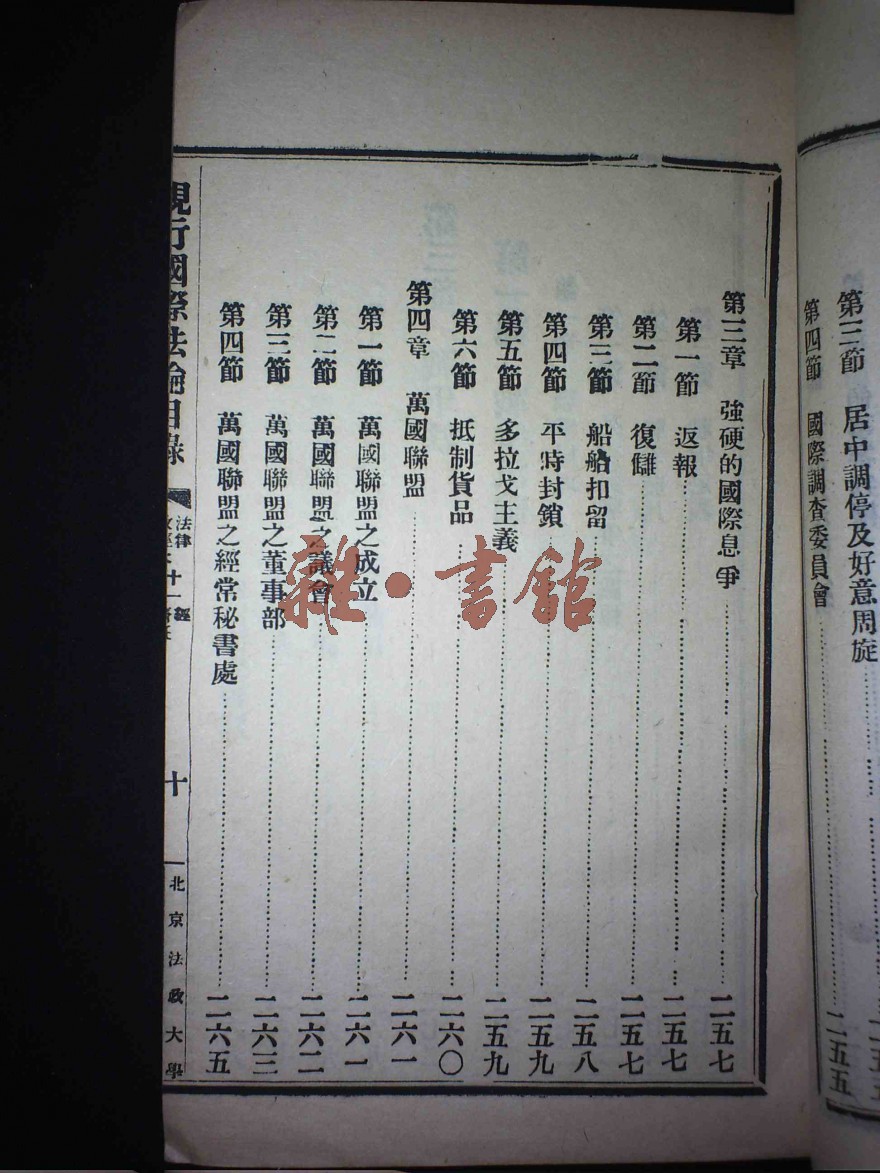 第三節　居中調停及好意周旋
第四節　國際調查委員會……二五五
第三章　強硬的國際息爭……二五七
第一節　返報……二五七
第二節　復讎……二五七
第三節　船舶扣留……二五八
第四節　平時封鎖……二五九
第五節　多拉戈主義……二五九
第六節　抵制貨品……二六〇
第四章　萬國聯盟……二六一
第一節　萬國聯盟之成立……二六一
第二節　萬國聯盟之議會……二六二
第三節　萬國聯盟之董事部……二六三
第四節　萬國聯盟之經常秘書處……二六五
現行國際法論目錄
法律
十
北京法政大學
雜·書館